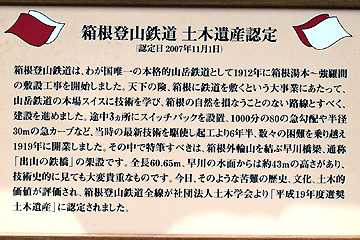 箱根登山鉄道 土木遺産認定
[認定日 2007年11月1日]
箱根登山鉄道は、わが国唯一の本格的山岳鉄道として1912年に箱根湯本ー強羅間
の敷設工事を開始しました。天下の険、箱根に鉄道を敷くという大事業にあたって、
山岳鉄道の本場スイスに技術を学び、箱根の自然を損なうことのない路線とすべく、
建設を進めました。途中3ヵ所にスイッチバックを設置、1000分の80の急勾配や半径
30mの急カーブなど、当時の最新技術を駆使し起工より6年半、数々の困難を乗り越え
1919年に開業しました。その中で特筆すべきは、箱根外輪山を結ぶ早川橋梁、通称
「出山の鉄橋」の架設です。全長60.65m、早川の水面からは約43mの高さがあり、技
術史的に見ても大変貴重なものです。今日、そのような苦難の歴史、文化、土木的
価値が評価され、箱根登山鉄道全線が社団法人土木学会より「平成19年度選奨
土木遺産」に認定されました。